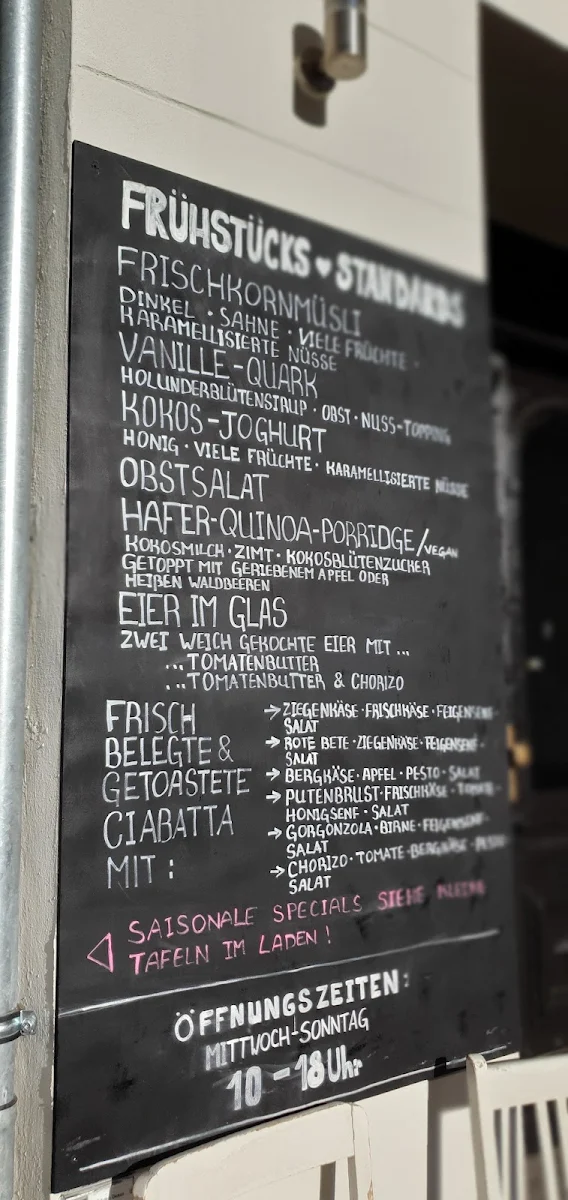 FRÜHSTÜCKS ♥ STANDARDS
FRISCHKORNMÜSLI
DINKEL · SAHNE · VIELE FRÜCHTE ·
KARAMELLISIERTE NÜSSE
VANILLE-QUARK
HOLUNDERBLÜTENSIRUP · OBST · NUSS-TOPPING
KOKOS-JOGHURT
HONIG · VIELE FRÜCHTE · KARAMELLISIERTE NÜSSE
OBSTSALAT
HAFER-QUINOA-PORRIDGE/VEGAN
KOKOSMILCH · ZIMT · KOKOSBLÜTENZUCKER
GETOPPT MIT GERIEBENEM APFEL ODER
HEIßEN WALDBEEREN
EIER IM GLAS
ZWEI WEICH GEKOCHTE EIER MIT ...
...TOMATENBUTTER
...TOMATENBUTTER & CHORIZO
FRISCH
BELEGTE &
GETOASTETE
CIABATTA
MIT :
→ ZIEGENKÄSE · FRISCHKÄSE · FEIGENSENF ·
SALAT
→ ROTE BETE · ZIEGENKÄSE · FEIGENSENF ·
SALAT
→ BERGKÄSE · APFEL · PESTO · SALAT
→ PUTENBRUST · FRISCHKÄSE · TOMATE ·
HONIGSENF · SALAT
→ GORGONZOLA · BIRNE · FEIGENSENF ·
SALAT
→ CHORIZO · TOMATE · BERGKÄSE · PESTO
SALAT
SAISONALE SPECIALS SIEHE KLEINE
TAFELN IM LADEN !
ÖFFNUNGSZEITEN:
MITTWOCH-SONNTAG
10 - 18 Uhr